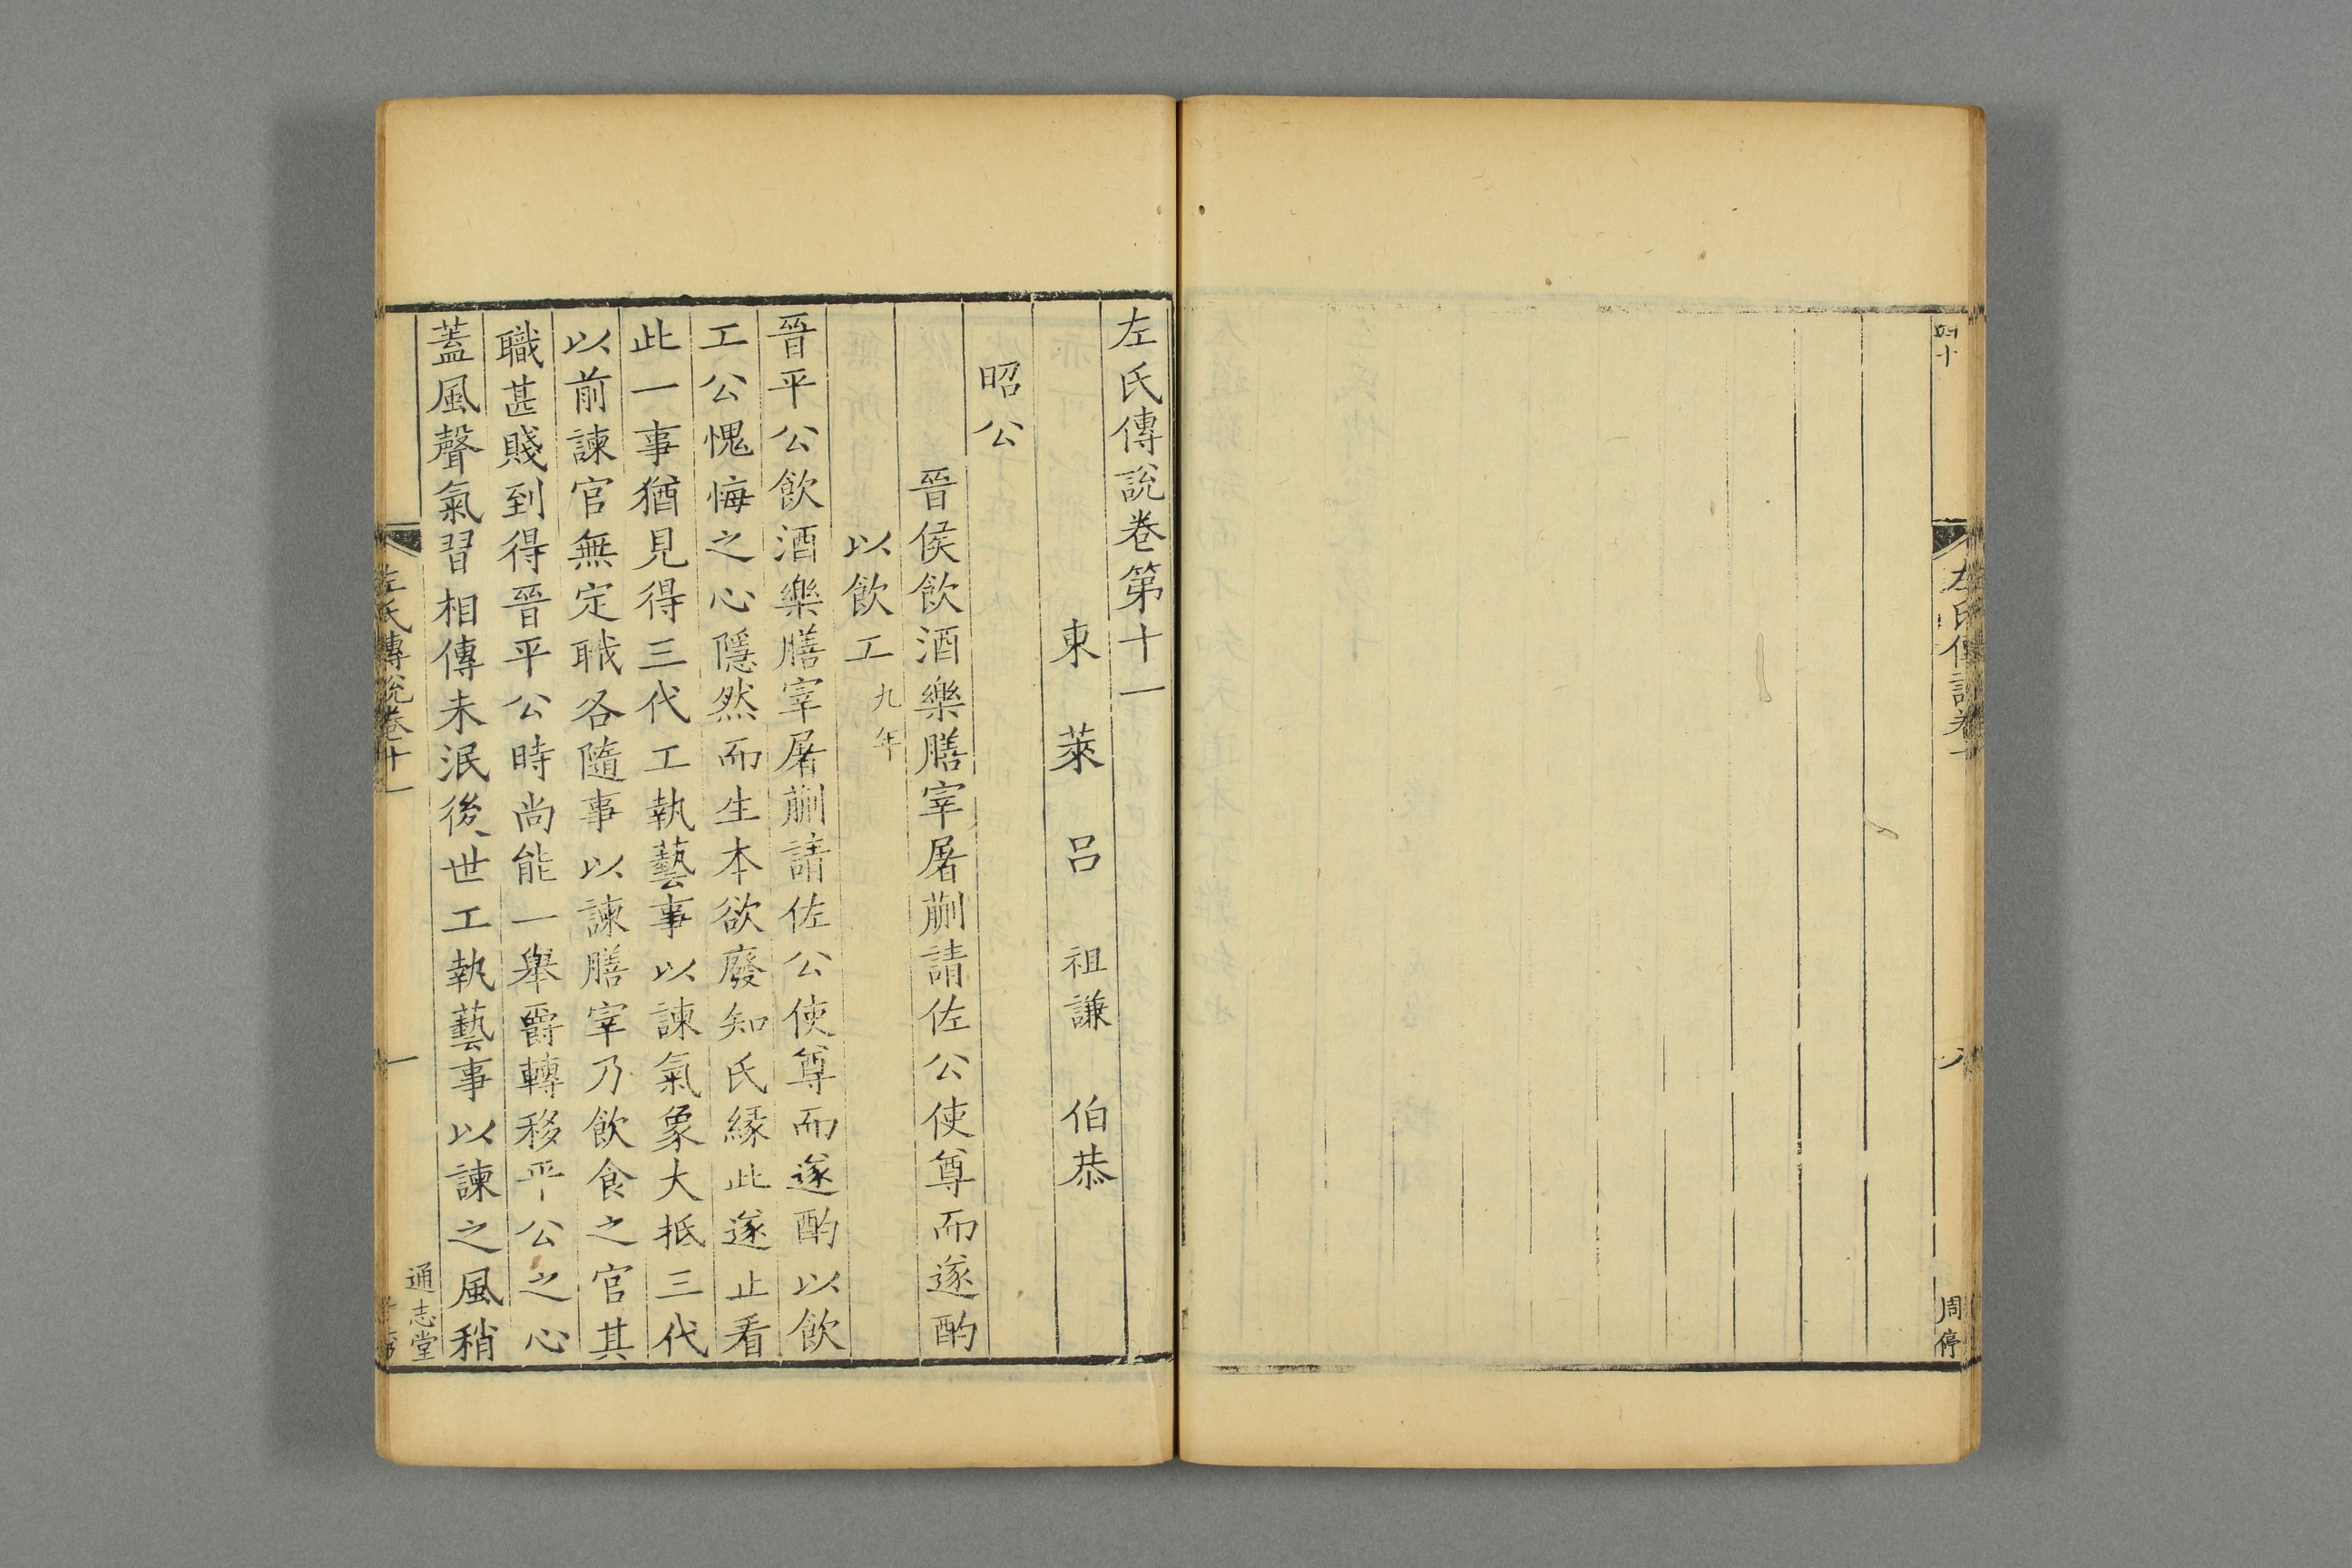 左氏傳說卷
八
周
左氏傳說卷第十一
東萊呂祖謙伯恭
昭公
晉侯飲酒樂膳宰屠蒯請佐公使尊而遂酌
以飲工九年
晉平公飲酒樂膳宰屠蒯請佐公使尊而遂酌以飲
工公愧悔之心隱然而生本欲廢知氏緣此遂止看
此一事猶見得三代工執藝事以諫氣象大抵三代
以前諫官無定職各隨事以諫膳宰乃飲食之官其
職甚賤到得晉平公時尚能一舉爵轉移平公之心
蓋風聲氣習相傳未泯後世工執藝事以諫之風稍
左氏傳說卷十一
一
通志堂